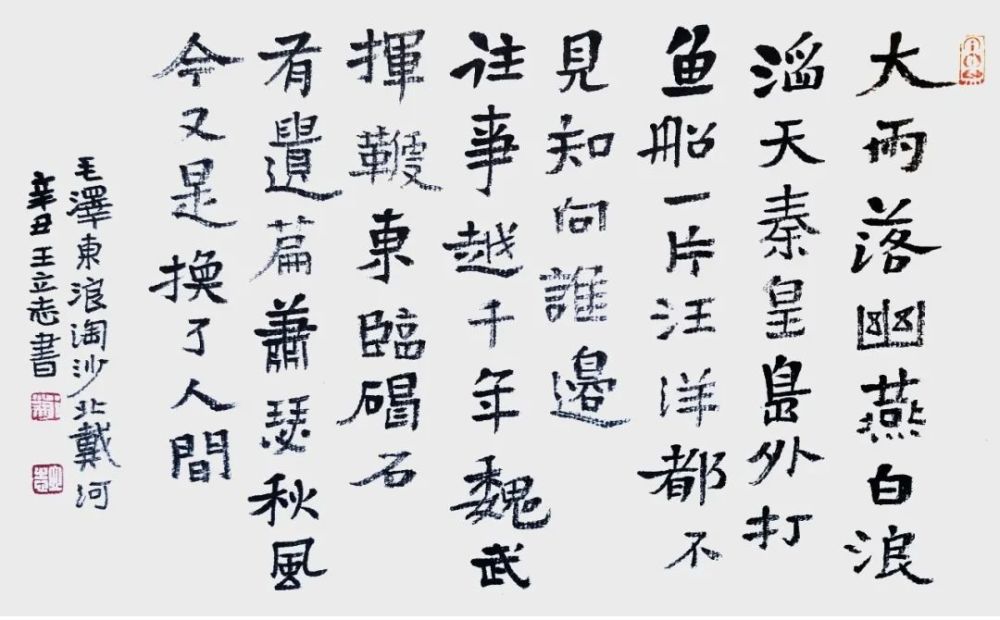 大雨落幽燕白浪
滔天秦皇島外打
鱼船一片汪洋都不
見知向誰邊
往事越千年魏武
揮鞭東臨碣石
有遺篇蕭瑟秋風
今又是換了人間
毛澤東浪淘沙北戴河
辛丑王立志書